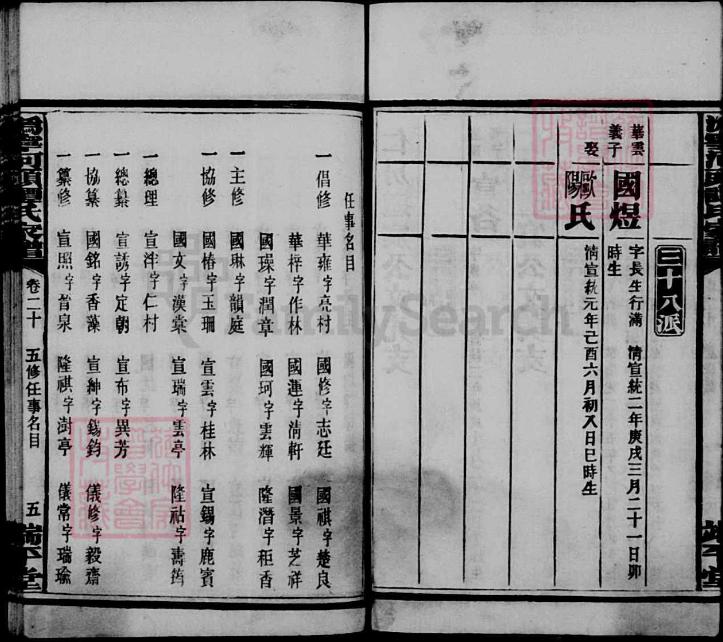 三十八派
華雲義子 國煜 字長生行滿 清宣統二年庚戌三月二十一日卯時生
娶歐陽氏 清宣統元年己酉六月初八日巳時生
端平堂
任事名目
一倡修 華雍字亮村 國修字志廷 國祺字楚良
華梓字作林 國運字清軒 國景字芝祥
國璪字潤章 國珂字雲輝 隆潛字秬香
一主修 國琳字韻庭
一協修 國椿字玉珊 宣雲字桂林 宣錫字鹿賓
國文字漢棠 宣瑞字雲亭 隆祜字壽筠
一總理 宣泮字仁村
一總纂 宣誘字定朝 宣布字異芳
一協纂 國銘字香藻 宣紳字錫鈞 儀修字毅齋
一纂修 宣照字普泉 隆祺字澍亭 儀常字瑞瑜
卷二十 五修任事名目 五
端平堂
FamilySearch